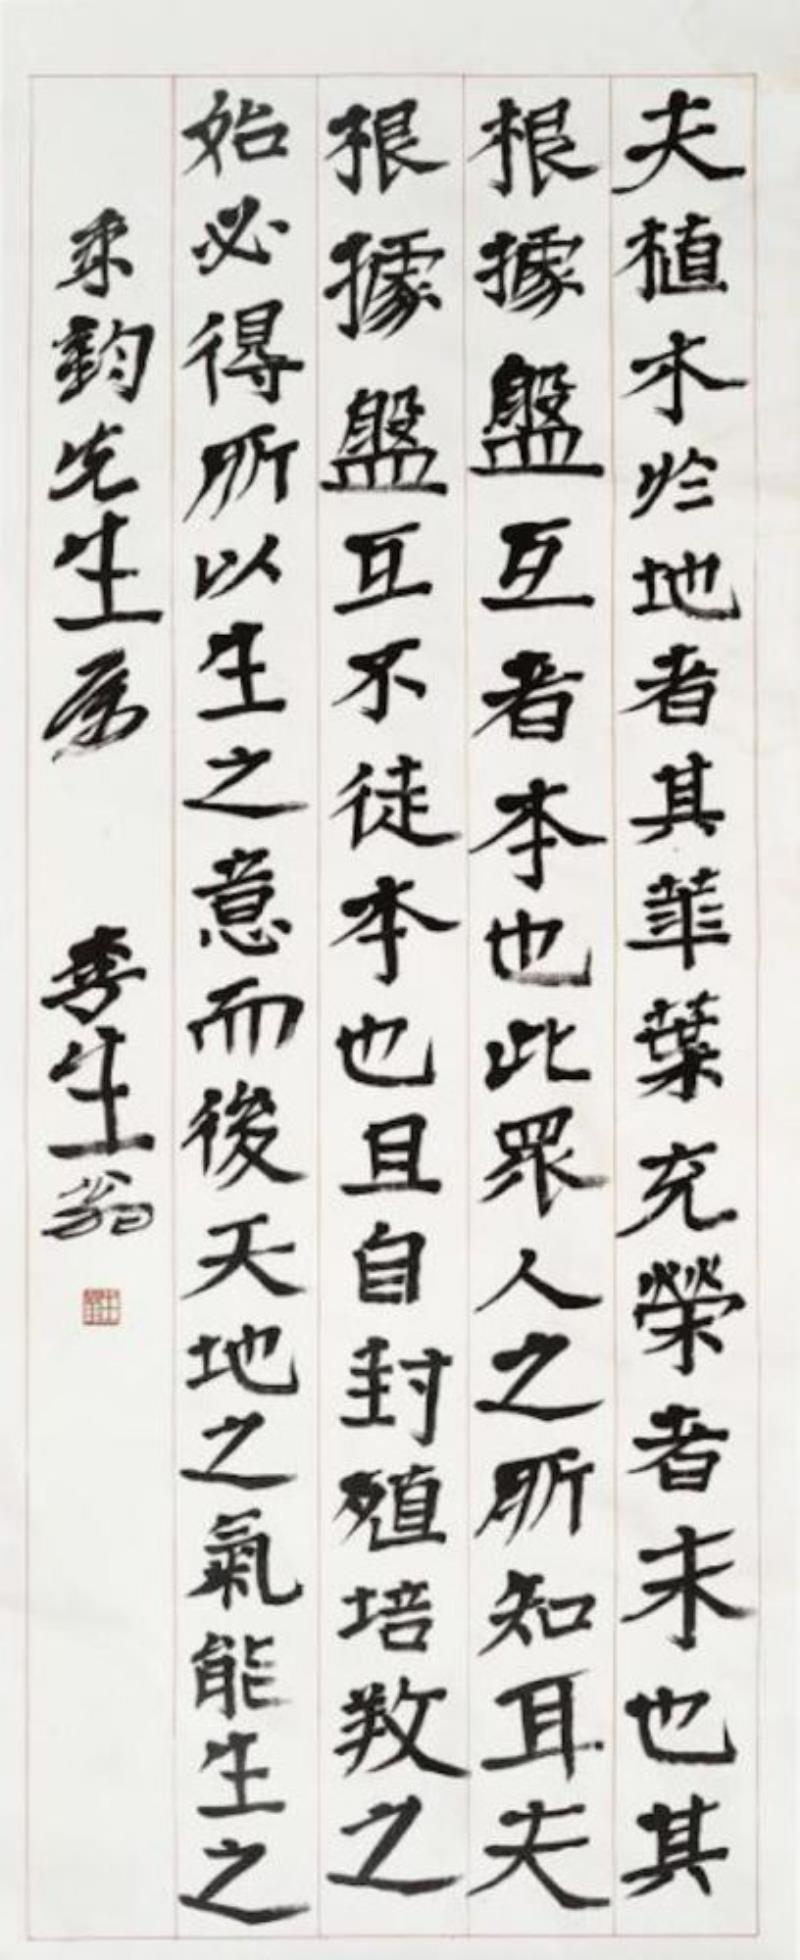 夫植木於地者其華葉充榮者末也其
根據盤互者本也此眾人之所知耳夫
根據盤互不徒本也且自封殖培敎之
始必得所以生之意而後天地之氣能生之
韵先生属
李生翁